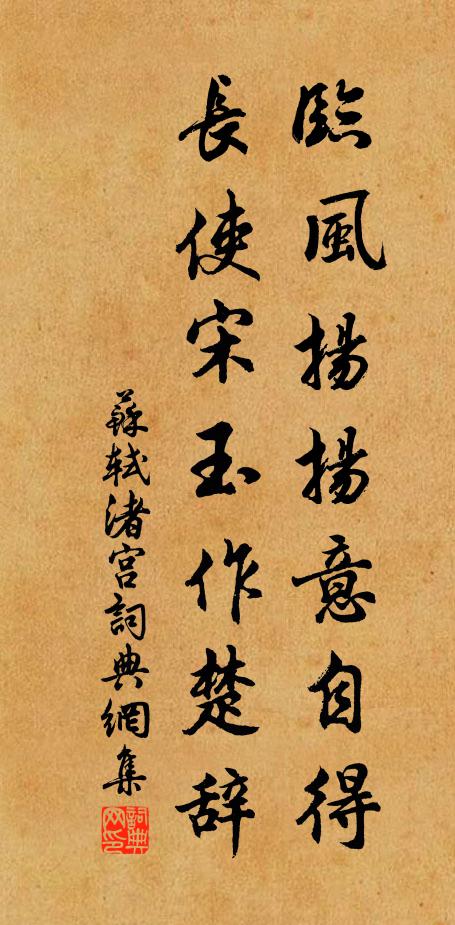 臨風揚揚意自得
長使宋玉作楚辞
蘇軾渚宮詞典網集
詞典网印